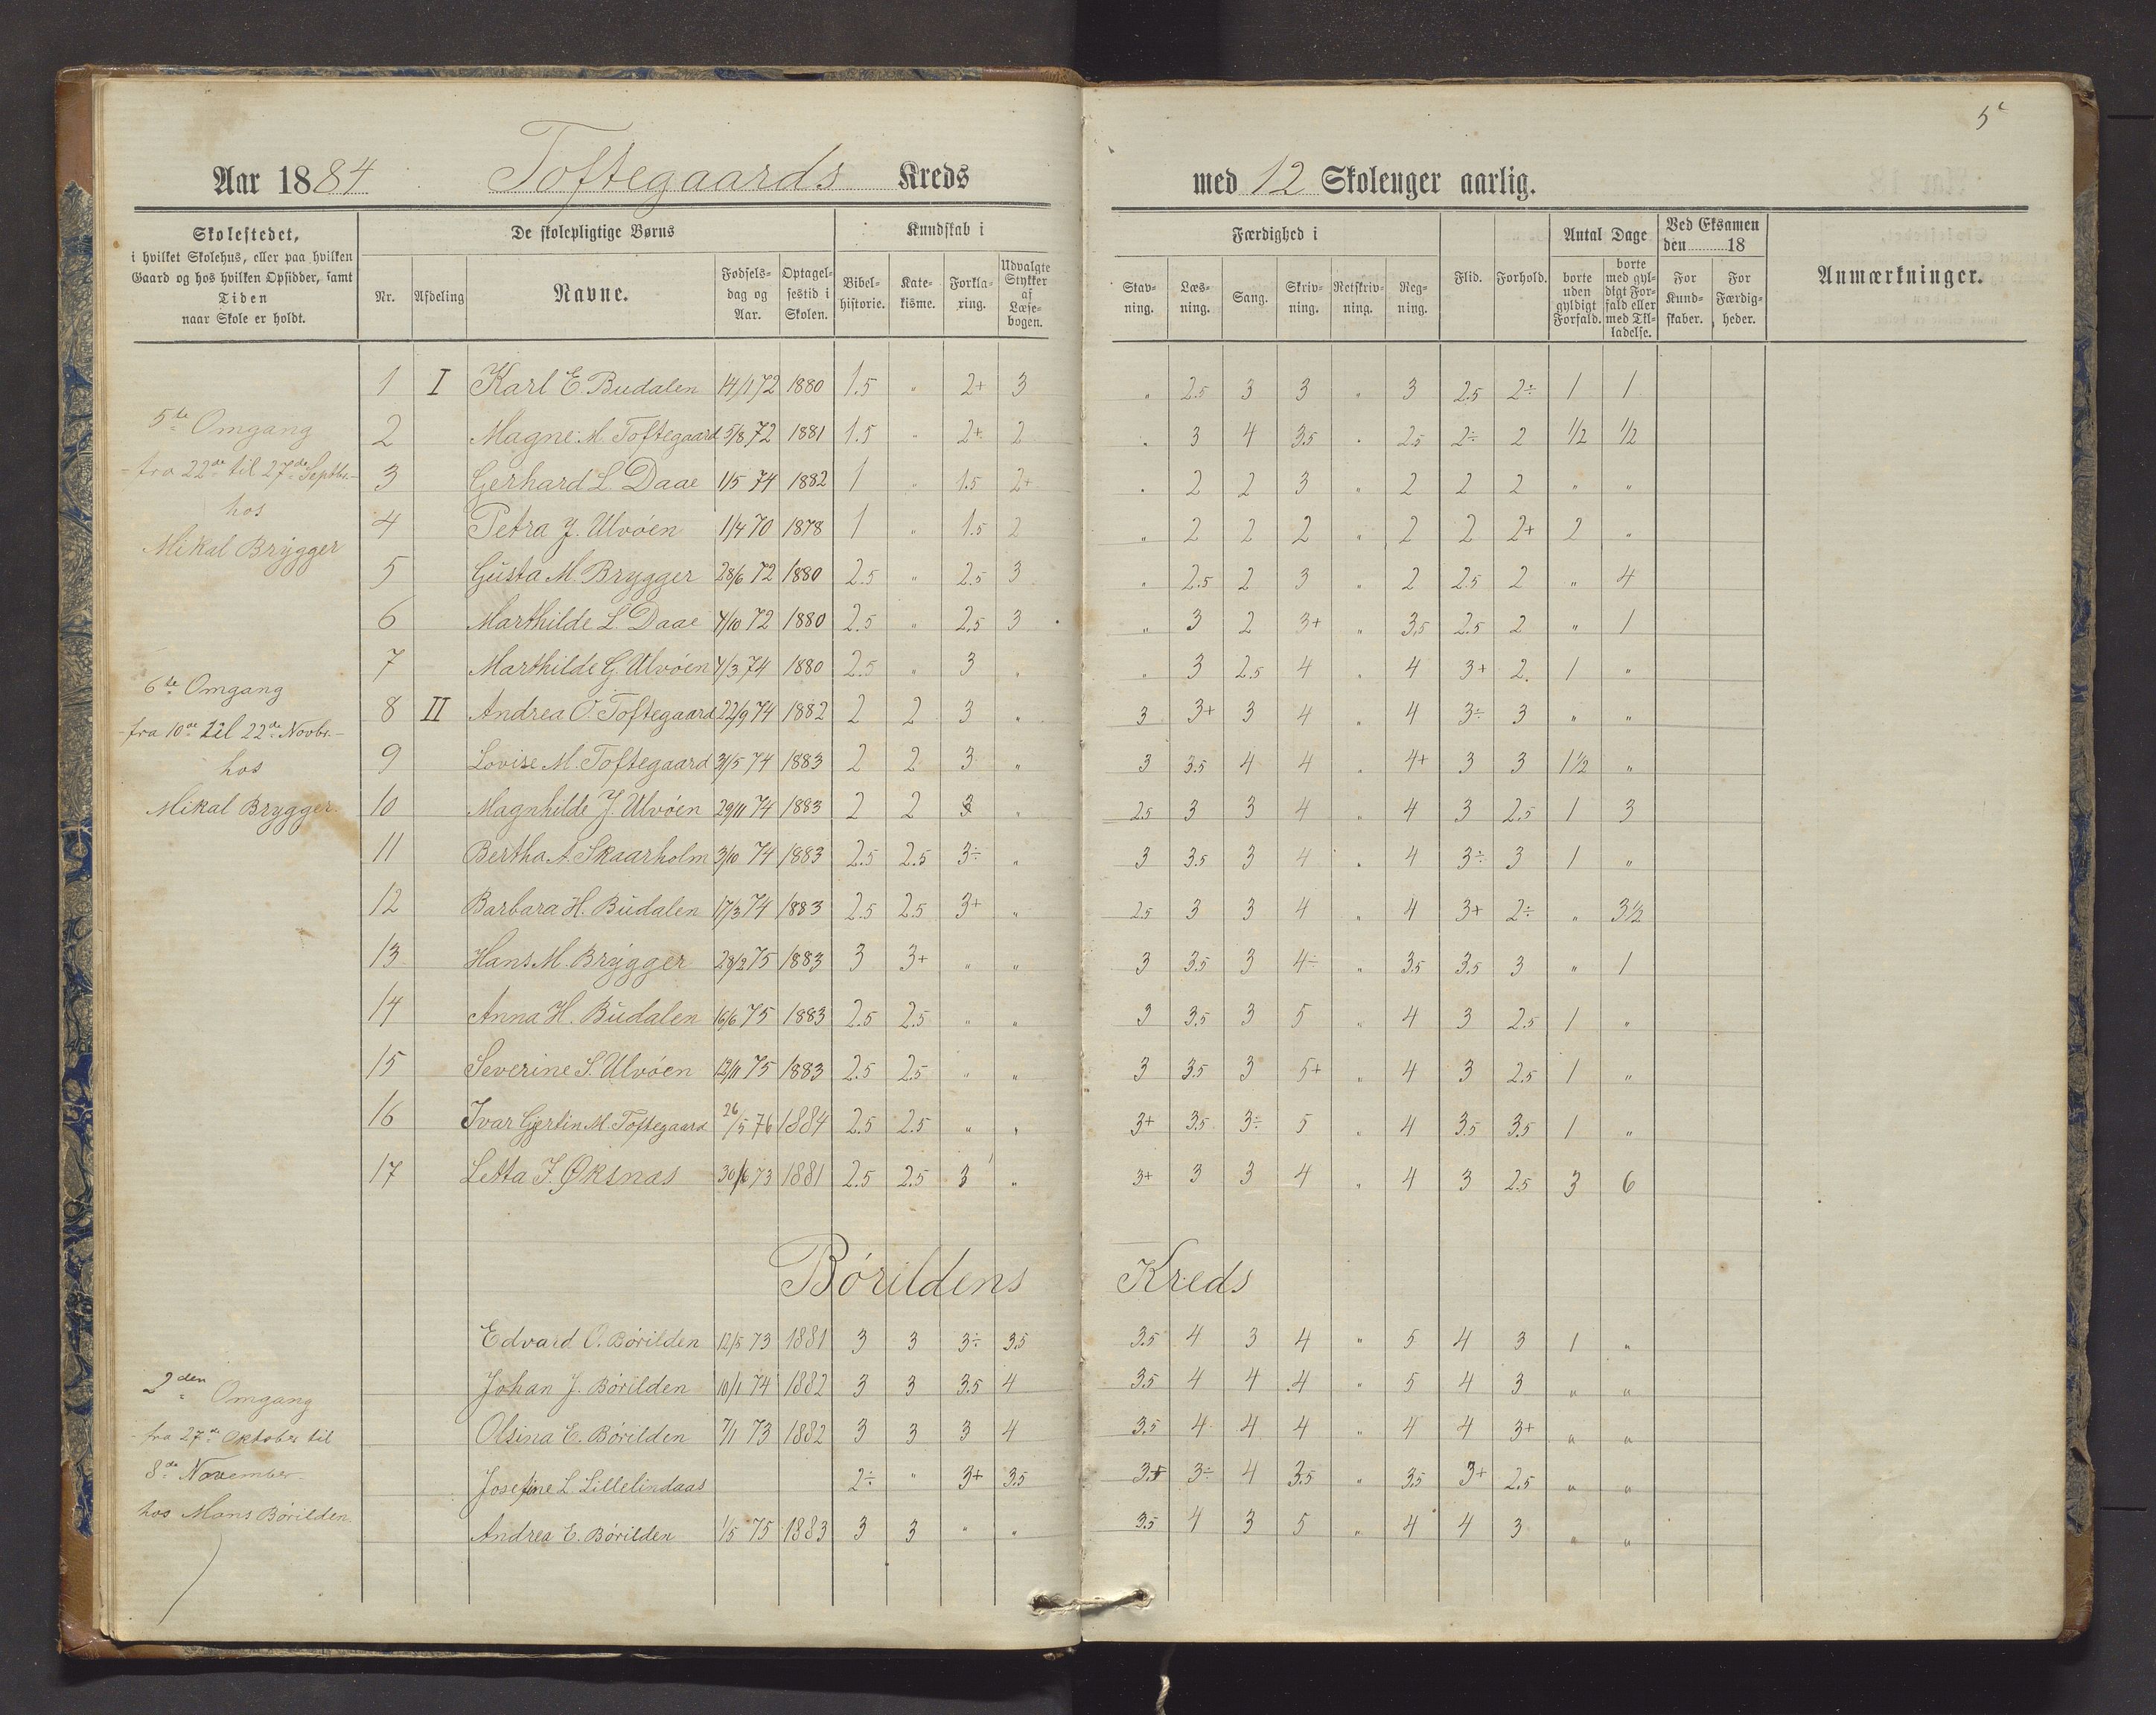 5
Aar 1884 Toftegaards Kreds med 12 Skoleuger aarlig.
Skolestedet,
i hvilket Skolehus, eller paa hvilken
Gaard og hos hvilken Opsidder, samt
Tiden
naar Skole er holdt.
De skolepligtige Børns
Nr. Afdeling Navne. Fødsels-dag og Aar. Optagel-sestid i Skolen.
Kundskab i
Bibel-historie. Kate-kisme. Forkla-ring. Udvalgte Stykker af Læse-bogen.
Færdighed i
Stav-ning. Læs-ning. Sang. Skriv-ning. Retskriv-ning. Reg-ning.
Flid. Forhold.
Antal Dage
borte uden gyldigt Forfald. borte med gyl-digt For-fald eller med Til-ladelse.
Ved Eksamen den 18
For Kund-skaber. For Færdig-heder.
Anmærkninger.
5te Omgang
fra 22de til 27de Septbr.
hos
Mikal Brygger
6te Omgang
fra 10de til 22de Novbr.
hos
Mikal Brygger.
1 I Karl E. Budalen 14/1 72 1880 1.5 " 2+ 3 " 2.5 3 3 " 3 2.5 2÷ 1 1
2 Magne M. Toftegaard 5/8 72 1881 1.5 " 2+ 2 " 3 4 3.5 " 2.5 2÷ 2 1/2 1/2
3 Gerhard L. Daae 1/5 74 1882 1 " 1.5 2+ " 2 2 3 " 2 2 2 " "
4 Petra J. Ulvöen 1/4 70 1878 1 " 1.5 2 " 2 2 2 " 2 2 2+ 2 "
5 Gusta M. Brygger 28/6 72 1880 2.5 " 2.5 3 " 2.5 2 3 " 2 2.5 2 " 4
6 Marthilde L. Daae 4/10 72 1880 2.5 " 2.5 3 " 3 2 3+ " 3.5 2.5 2 " 1
7 Marthilde G. Ulvöen 4/3 74 1880 2.5 " 3 " " 3 2.5 4 " 4 3+ 2. 1 "
8 II Andrea O. Toftegaard 22/9 74 1882 2 2 3 " 3 3+ 3 4 " 4 3÷ 3 " "
9 Lovise M. Toftegaard 31/5 74 1883 2 2 3 " 3 3.5 4 4 " 4+ 3 3 1 1/2 "
10 Magnhilde J. Ulvöen 29/11 74 1883 2 2 3 " 2.5 3 3 4 " 4 3 2.5 1 3
11 Bertha A. Skaarholm 3/10 74 1883 2.5 2.5 3÷ " 3 3.5 3 4 " 4 3÷ 3 1 "
12 Barbara H. Budalen 17/3 74 1883 2.5 2.5 3+ " 2.5 3 3 4 " 4 3+ 2÷ " 3 1/2
13 Hans M. Brygger 28/2 75 1883 3 3+ " " 3 3.5 3 4÷ " 3.5 3.5 3 " 1
14 Anna H. Budalen 16/6 75 1883 2.5 2.5 " " 3 3.5 3 5 " 4 3 2.5 1 "
15 Severine S. Ulvöen 12/11 75 1883 2.5 2.5 " " 3 3.5 3 5+ " 4 3 2.5 1 "
16 Ivar Gjertin M. Toftegaard 26/5 76 1884 2.5 2.5 " " 3+ 3.5 3÷ 5 " 4 3.5 3.5 1 "
17 Letta J. Øksnæs 30/6 73 1881 2.5 2.5 3 " 3+ 3 3 4 " 4 3 2.5 3 6
Börildens Kreds
2den Omgang
fra 27de Oktober til
8de November
hos Mons Börilden
Edvard O. Börilden 12/5 73 1881 3 3 3÷ 3.5 3.5 4 3 4 " 5 4 3 1 "
Johan J. Börilden 10/1 74 1882 3 3 3.5 4 3.5 4 4 4 " 5 4 3 " "
Olsina E. Börilden 7/1 73 1882 3 3 3 4 3.5 4 4 4 " 4 4 3+ " "
Josefine L Lillelindaas 2÷ " 3+ 3.5 3+ 3÷ 4 3.5 " 3.5 3+ 2.5 " "
Andrea E. Börilden 1/5 75 1883 3 3 " " 3.5 4 3 5 " 4 4 3 " "